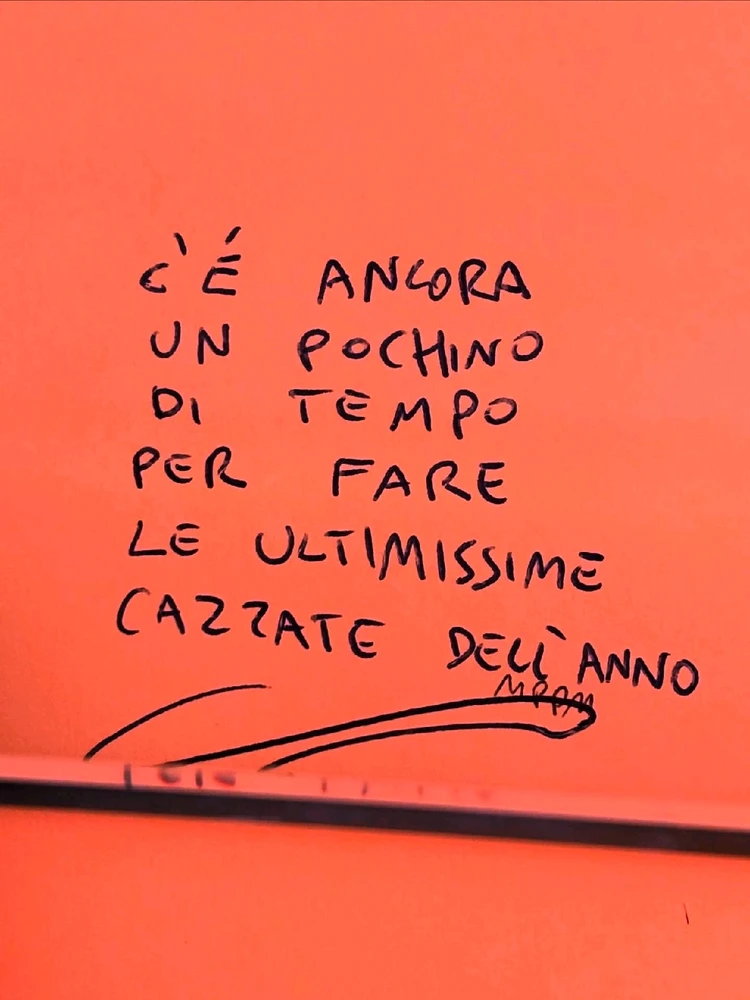 C'É ANCORA
UN POCHINO
DI TEMPO
PER FARE
LE ULTIMISSIME
CAZZATE DELL'ANNO